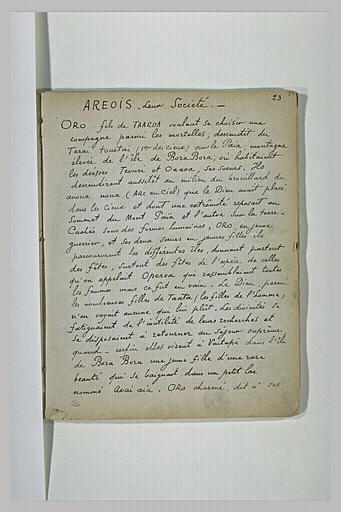 23
AREOIS. Leur Société. —
ORO fils de TAAROA voulant se choisir une
compagne parmi les mortelles, descendit du
Terai touetai (1er des cieux) sur le Paia, montagne
élevée de l'île de Bora Bora, où habitaient
les déesses Teouri et Oaaoa, ses soeurs. Ils
descendirent aussitôt au milieu du brouillard du
anoua noua (ARC en Ciel) que le Dieu avait placé
dans les Cieux et dont une extrémité reposait au
Sommet du Mont Païa et l'autre sur la terre.
Cachés sous des formes humaines, ORO, en jeune
guerrier, et ses deux soeurs en jeunes filles ils
parcoururent les différentes îles, donnant partout
des fêtes, surtout des fêtes de l'espèce de celles
qu'on appelait Operoa qui rassemblaient toutes
les femmes mais ce fut en vain. Le Dieu, parmi
les nombreuses filles de Taata, (les filles de l'homme)
n'en voyait aucune qui lui plût. Les divinités se
fatiguaient de l'inutilité de leurs recherches et
se disposaient à retourner au séjour suprême
quand — enfin elles virent à Vaïtapé dans l'île
de Bora Bora une jeune fille d'une rare
beauté qui se baignait dans un petit lac
nommé Avai aia. ORO charmé, dit à ses